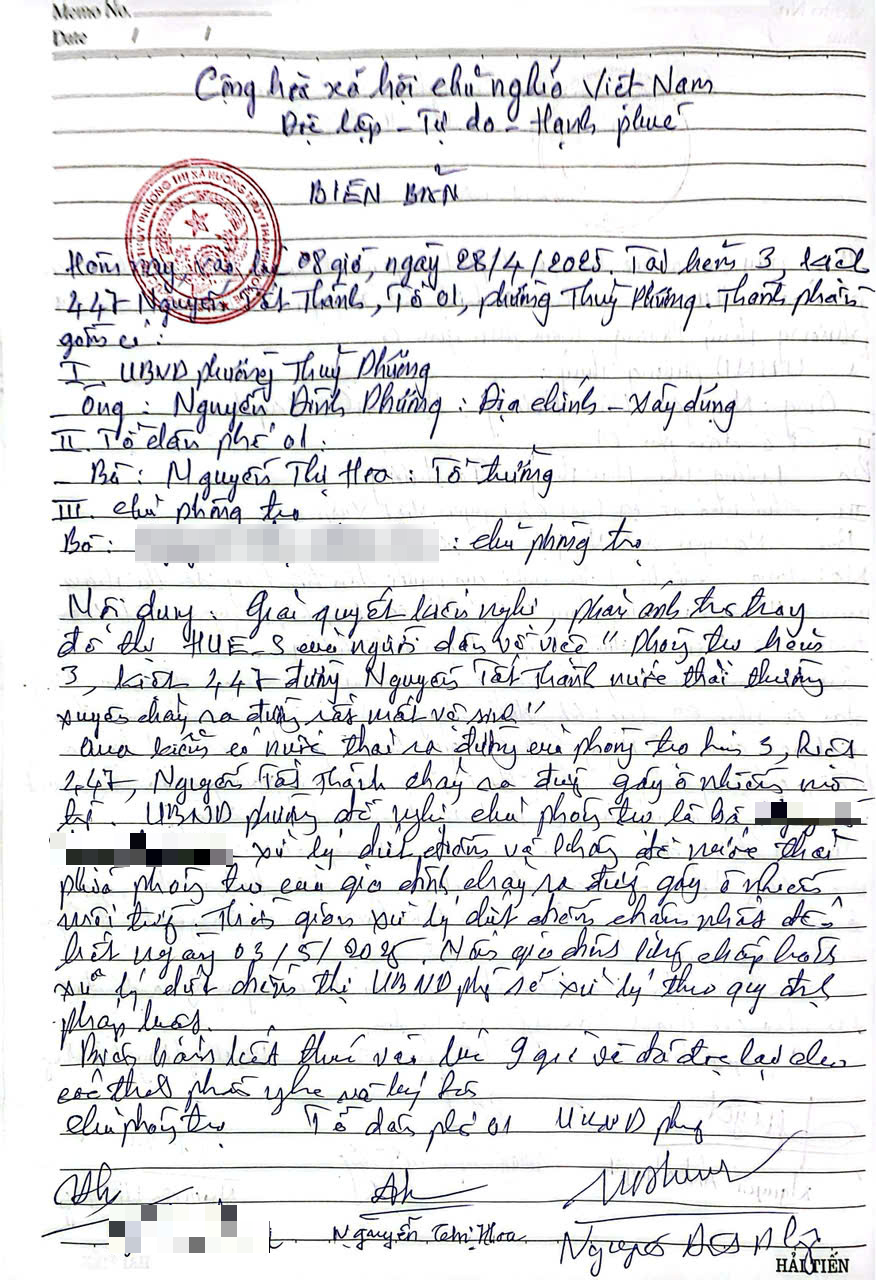 Memo No.
Date / /
Cộng hòa xã hội chủ nghĩa Việt Nam
Độc lập - Tự do - Hạnh phúc
BIÊN BẢN
Hôm nay, vào lúc 08 giờ, ngày 28/4/2025. Tại hẻm 3, kiệt
447 Nguyễn Tất Thành, Tổ 01, phường Thuỷ Phương. Thành phần
gồm có:
I. UBND phường Thuỷ Phương
Ông: Nguyễn Đình Phương: Địa chính - Xây dựng
II. Tổ dân phố 01:
- Bà: Nguyễn Thị Hoa: Tổ trưởng
III. Chủ phòng trọ
Bà: : chủ phòng trọ
Nội dung: Giải quyết kiến nghị, phản ánh trên
đô thị HUE-S của người dân về việc "Phòng trọ hẻm
3, kiệt 447 đường Nguyễn Tất Thành nước thải thường
xuyên chảy ra đường rất mất vệ sinh"
Qua kiểm có nước thải ra đường của phòng trọ hẻm 3, kiệt
447, Nguyễn Tất Thành chảy ra đường gây ô nhiễm môi
trường. UBND phường đề nghị chủ phòng trọ là bà
xử lý dứt điểm và không để nước thải
phía phòng trọ của gia đình chảy ra đường gây ô nhiễm
môi trường. Thời gian xử lý dứt điểm chậm nhất đến
hết ngày 03/5/2025. Nếu gia đình không chấp hành
xử lý dứt điểm thì UBND phường sẽ xử lý theo quy định
pháp luật.
Biên bản kết thúc vào lúc 9 giờ và đã đọc lại cho
các thành phần nghe và ký tên
Chủ phòng trọ Tổ dân phố 01 UBND phường
Nguyễn Thị Hoa
HẢI TIẾN